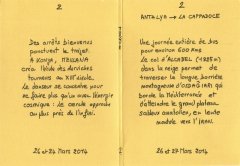 2
Des arrêts bienvenus
ponctuent le trajet.
A KONYA, MEVLANA
créa l'école des derviches
tourneurs au XIIIe siècle.
Le danseur se concentre pour
ne faire plus qu'un avec l'énergie
cosmique : le cercle approche
au plus près de l'infini.
26 et 27 Mars 2014
2
ANTALYA → LA CAPPADOCE
Une journée entière de bus
pour environ 600 Kms
Le col d'ALCABEL (1825m)
dans la neige permet de
traverser la longue barrière
montagneuse
qui
borde la Méditerranée et
d'atteindre le grand plateau
anatolien, en lente
montée vers l'IRAN.
26 et 27 Mars 2014